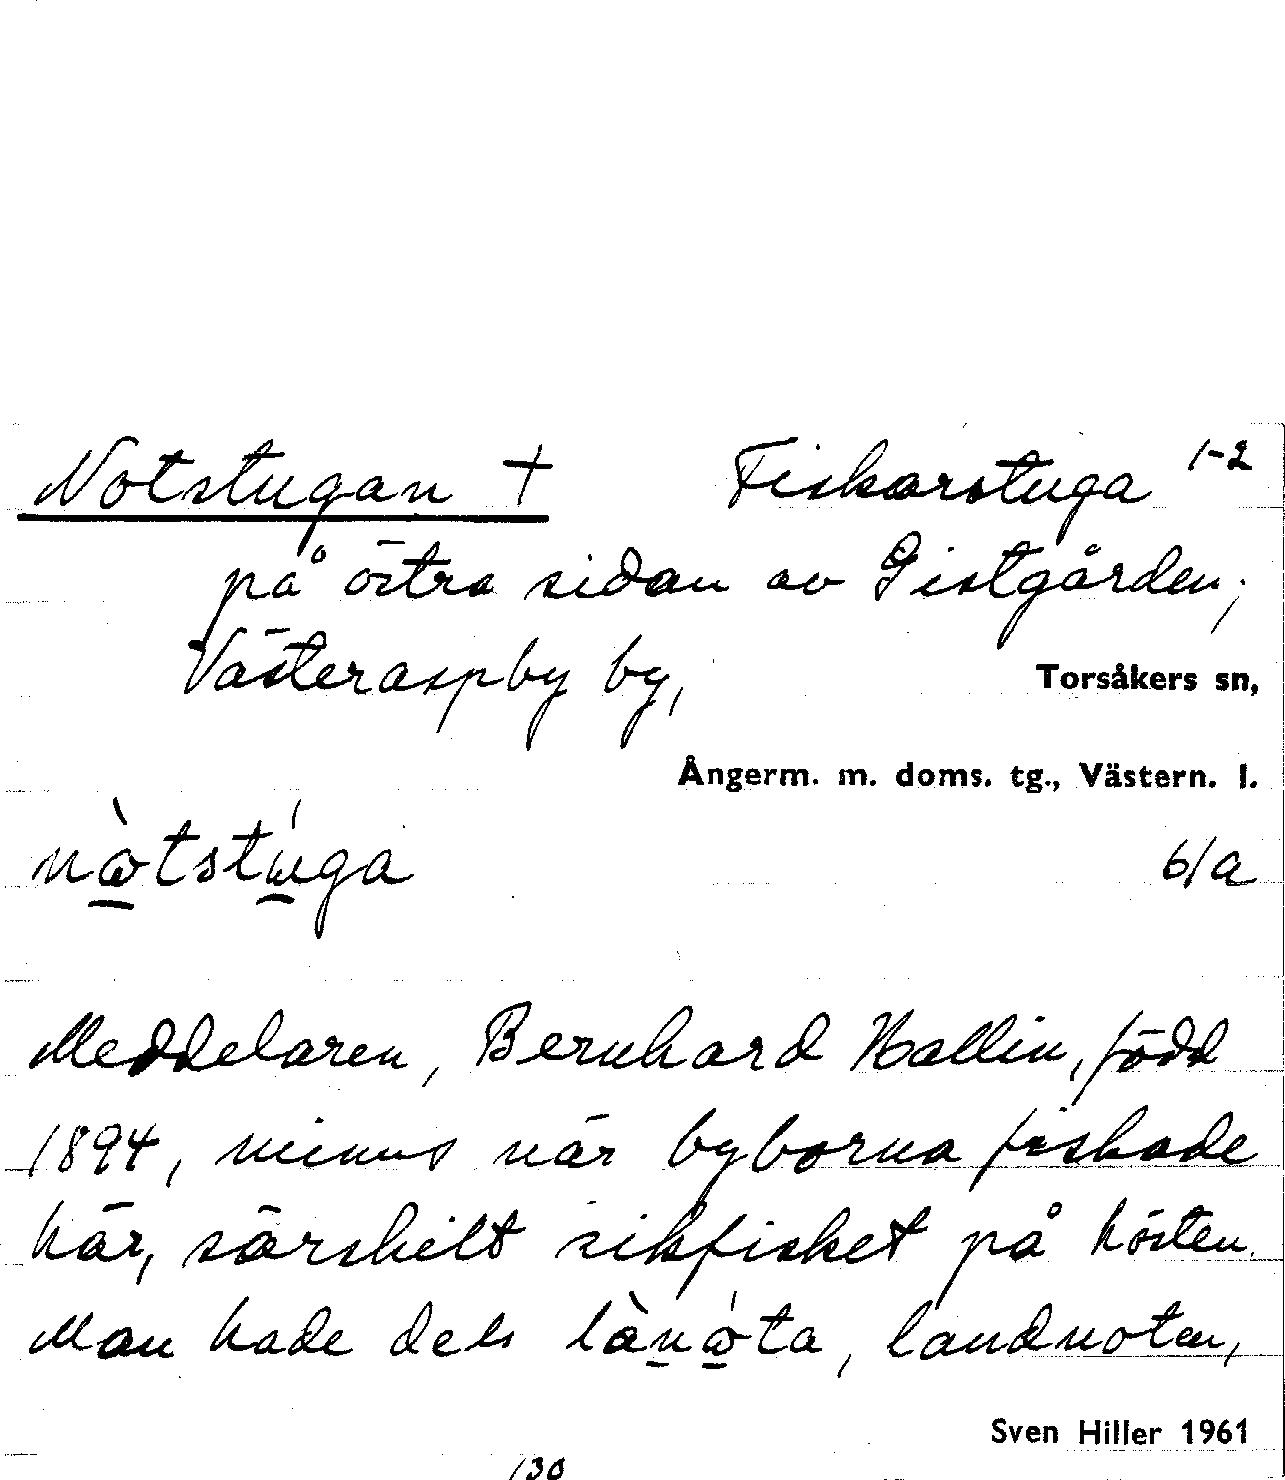 Notstugan + Fiskarstuga 1-2
på östra sidan av Gistgården,
Västeraspby by, Torsåkers sn,
Ångerm. m. doms. tg., Västern. l.
nòtstúga 6/a
Meddelaren, Bernhard Hallin, född
1894, minns när byborna fiskade
här, särskilt sikfisket på hösten.
Man hade dels lànóta, landnoten,
Sven Hiller 1961
130